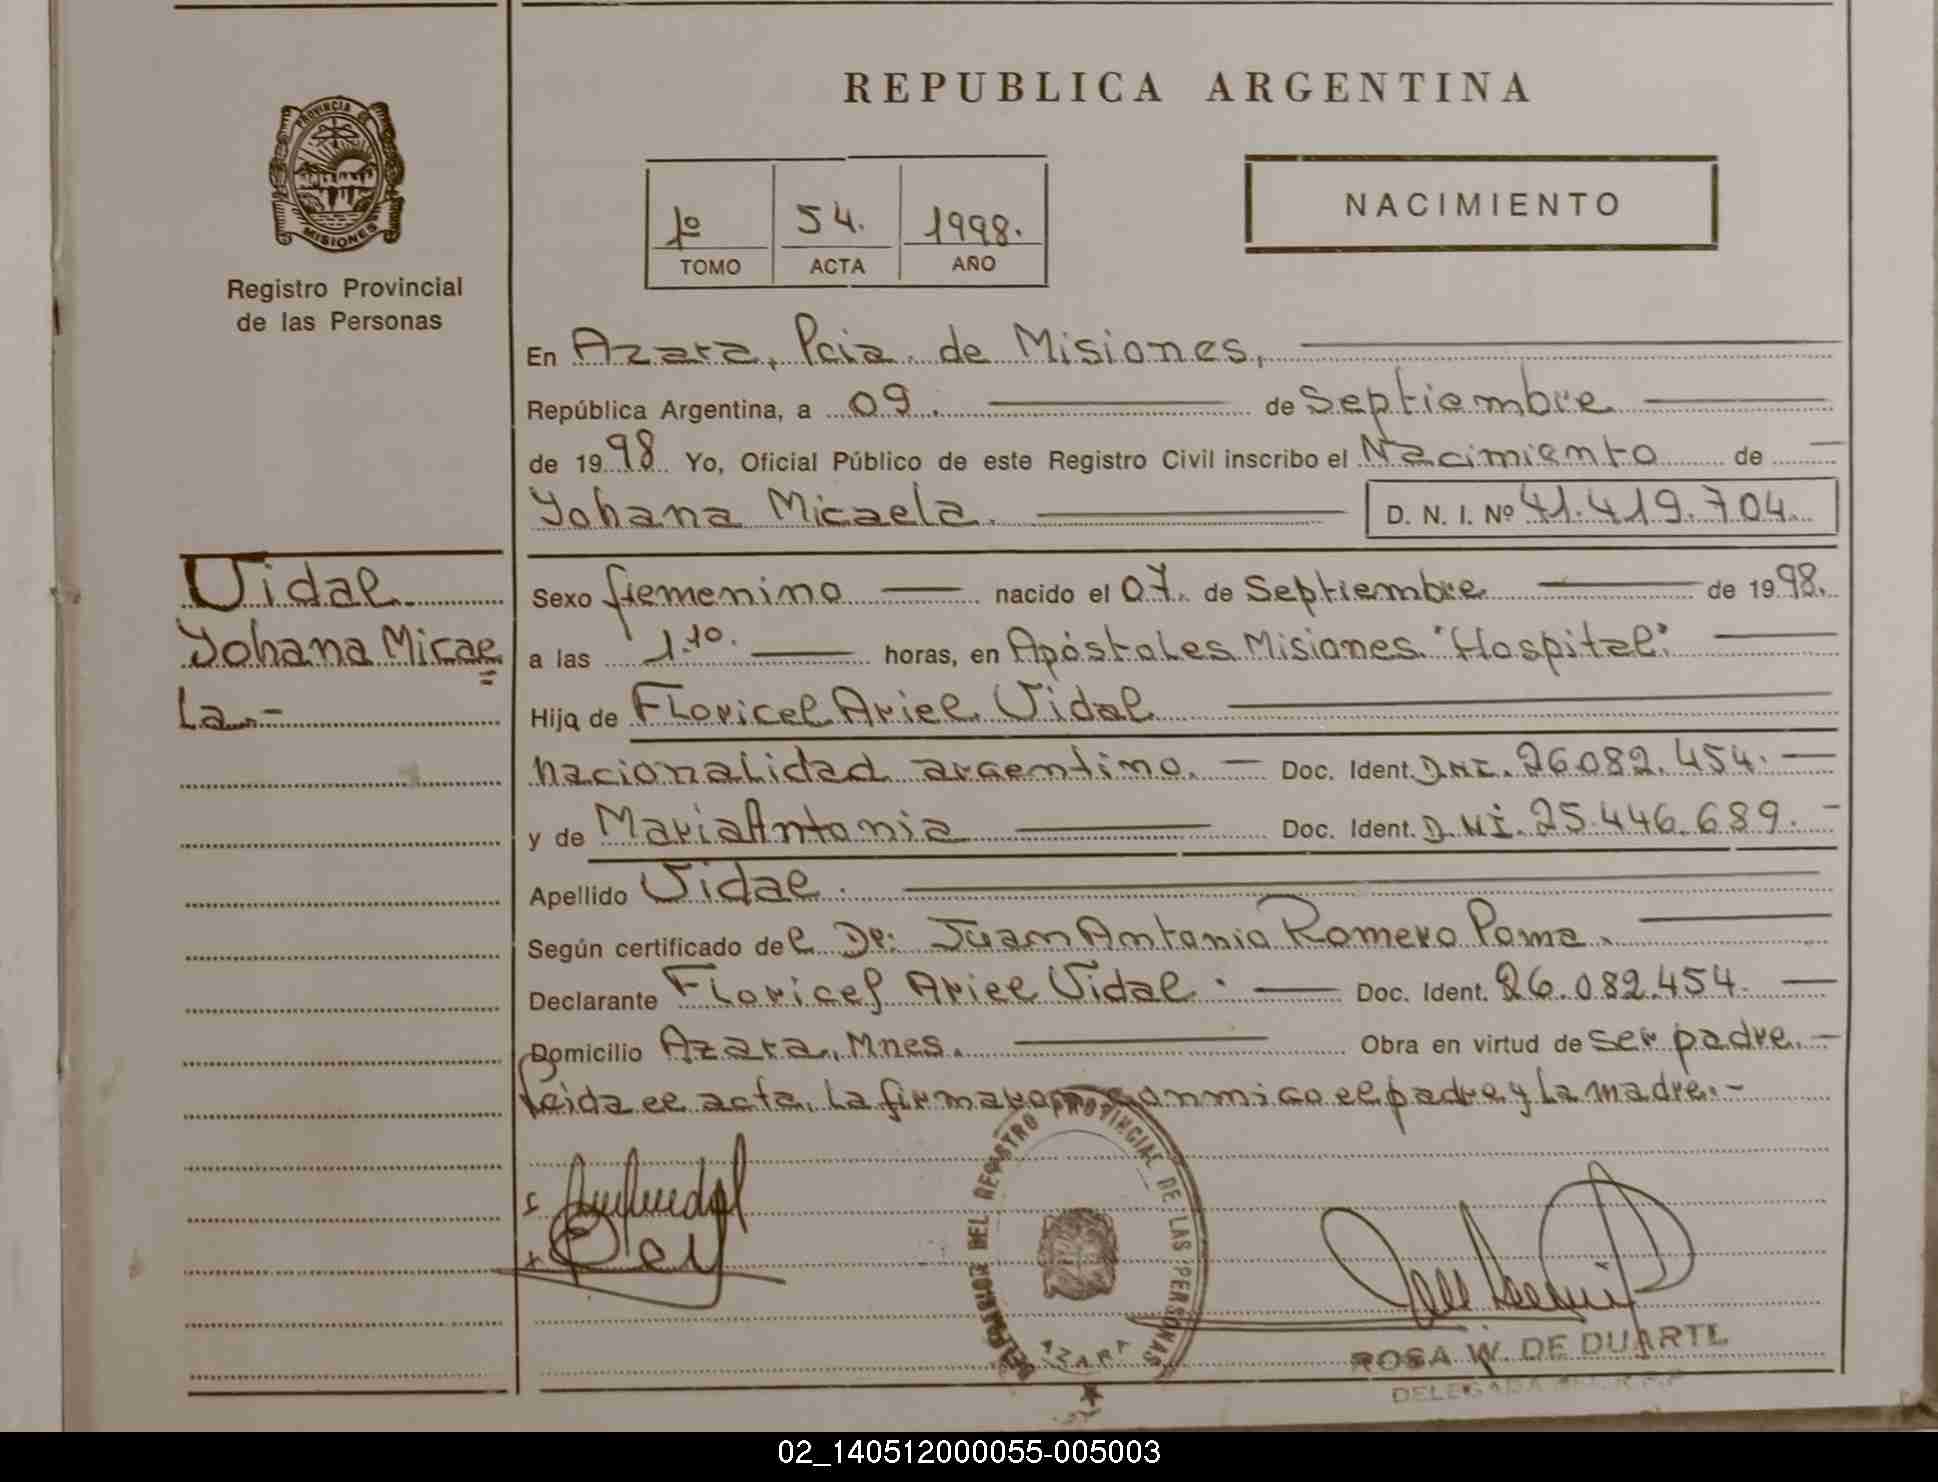 REPUBLICA ARGENTINA
PROVINCIA DE MISIONES
Registro Provincial
de las Personas
1º 54. 1998.
TOMO ACTA AÑO
NACIMIENTO
En Azara, Pcia. de Misiones,
República Argentina, a 09. de Septiembre
de 1998 Yo, Oficial Público de este Registro Civil inscribo el Nacimiento de
Yohana Micaela. D. N. I. Nº 41.419.704.
Vidal
Yohana Micae
la.-
Sexo femenino nacido el 07. de Septiembre de 1998.
a las 1.10. horas, en Apóstoles Misiones "Hospital".
Hija de Floricel Ariel Vidal
nacionalidad argentino. Doc. Ident. D.N.I. 26.082.454.
y de Maria Antonia Doc. Ident. D.N.I. 25.446.689.
Apellido Vidal.
Según certificado del Dr. Juan Antonio Romero Poma.
Declarante Floricel Ariel Vidal. Doc. Ident. 26.082.454.
Domicilio Azara, Mnes. Obra en virtud de ser padre.
Leida el acta, la firmaron conmigo el padre y la madre.-
DELEGACION DEL REGISTRO PROVINCIAL DE LAS PERSONAS
AZARA
ROSA W. DE DUARTE
DELEGADA DEL R.P.P
02_140512000055-005003